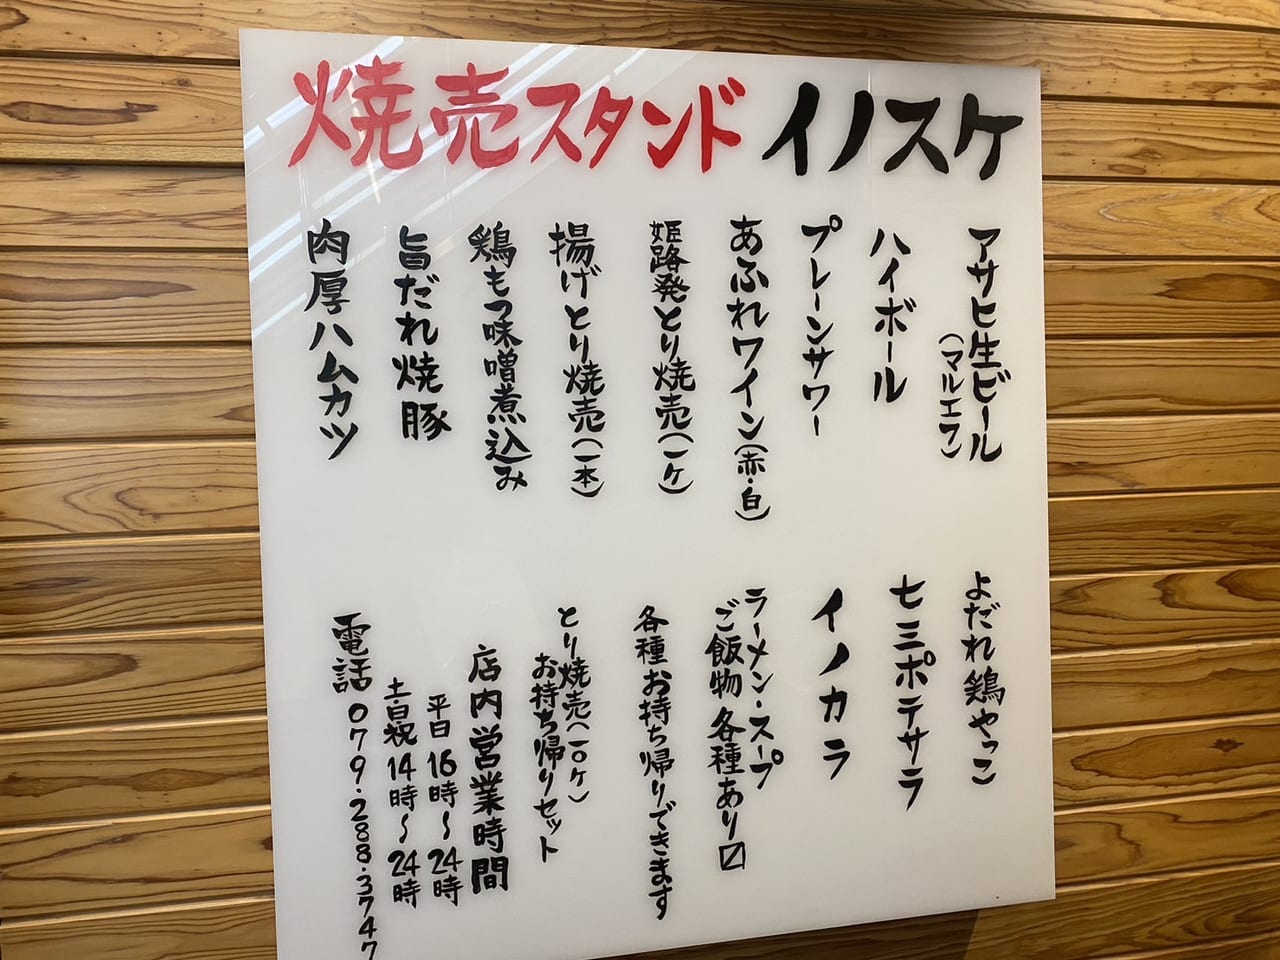 焼売スタンド イノスケ
アサヒ生ビール
(マルエフ)
ハイボール
プレーンサワー
あふれワイン(赤・白)
姫路発とり焼売(一ケ)
揚げとり焼売(一本)
鶏もつ味噌煮込み
旨だれ焼豚
肉厚ハムカツ
よだれ鶏やっこ
七三ポテサラ
イノカラ
ラーメン・スープ
ご飯物各種あり〼
各種お持ち帰りできます
とり焼売(一〇ケ)
お持ち帰りセット
店内営業時間
平日16時〜24時
土・日祝14時〜24時
電話079・288・3747